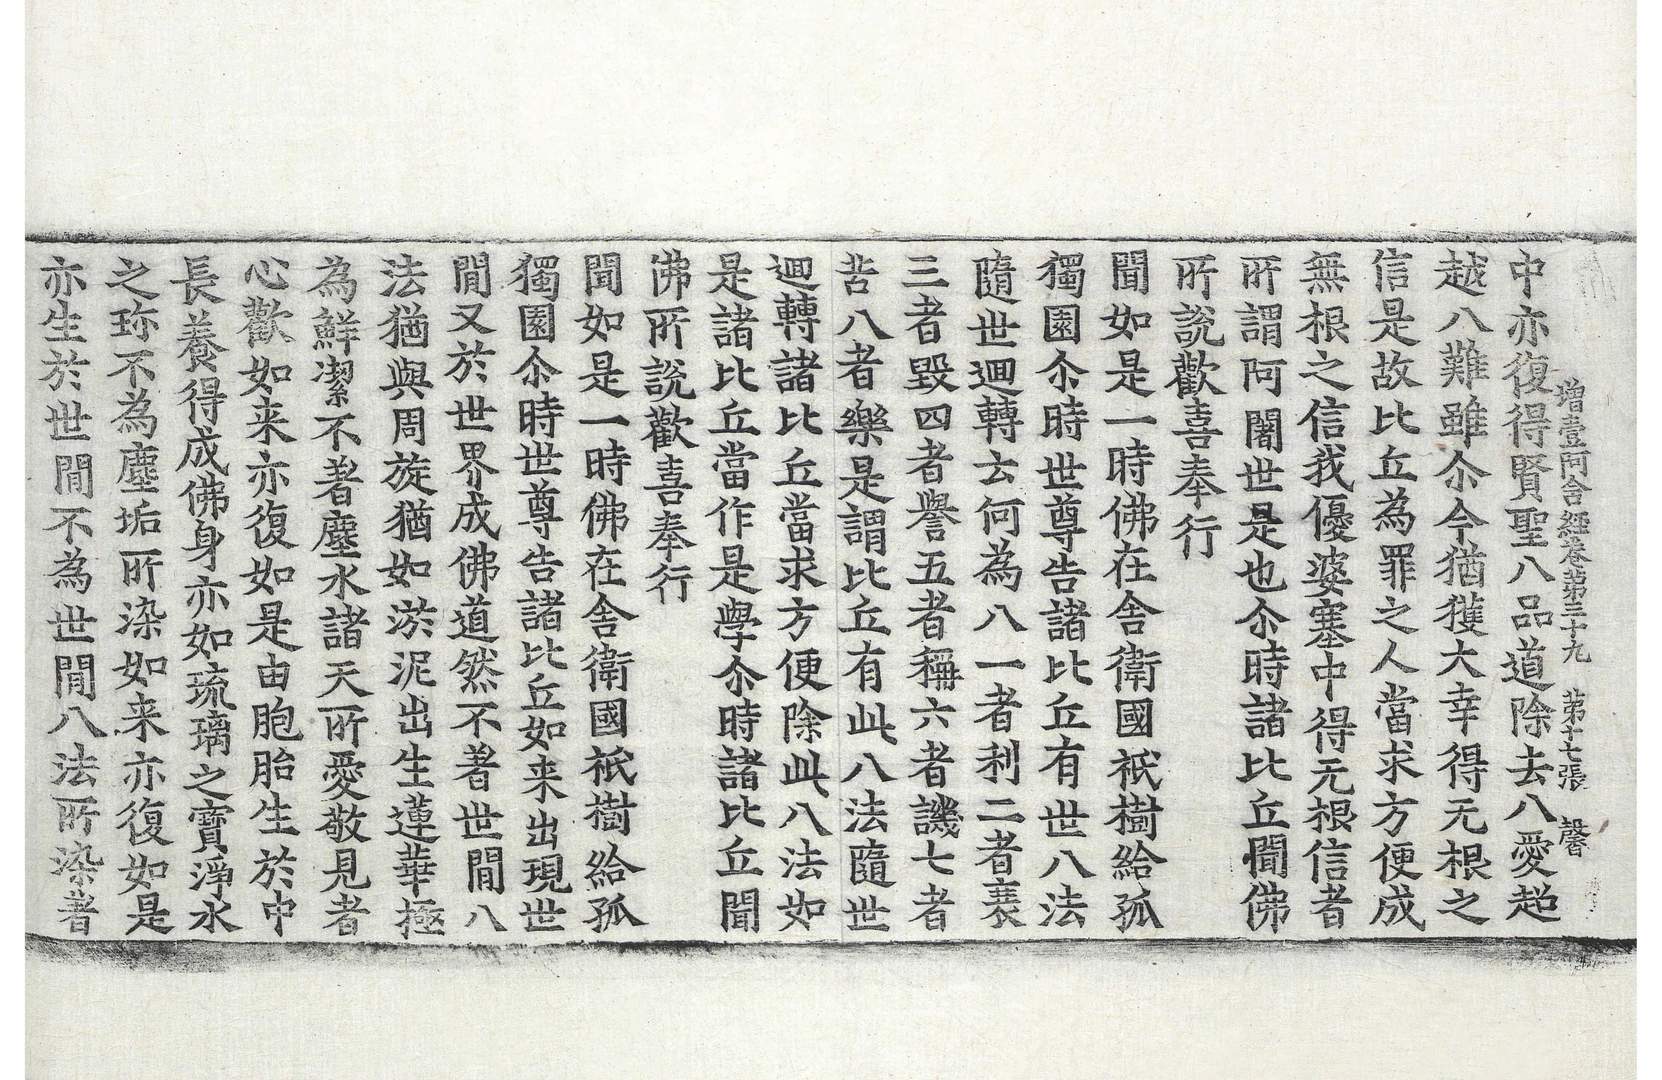 增壹阿含經卷第三十九 第十七張 馨
中亦復得賢聖八品道除去八愛超
越八難雖尒今猶獲大幸得无根之
信是故比丘為罪之人當求方便成
無根之信我優婆塞中得元根信者
所謂阿闍世是也尒時諸比丘聞佛
所說歡喜奉行
聞如是一時佛在舍衛國祇樹給孤
獨園尒時世尊告諸比丘有世八法
隨世迴轉云何為八一者利二者衰
三者毀四者譽五者稱六者譏七者
苦八者樂是謂比丘有此八法隨世
迴轉諸比丘當求方便除此八法如
是諸比丘當作是學尒時諸比丘聞
佛所說歡喜奉行
聞如是一時佛在舍衛國祇樹給孤
獨園尒時世尊告諸比丘如来出現世
間又於世界成佛道然不著世間八
法猶與周旋猶如淤泥出生蓮華極
為鮮潔不著塵水諸天所愛敬見者
心歡如来亦復如是由胞胎生於中
長養得成佛身亦如琉璃之寶淨水
之珎不為塵垢所染如来亦復如是
亦生於世間不為世間八法所染著